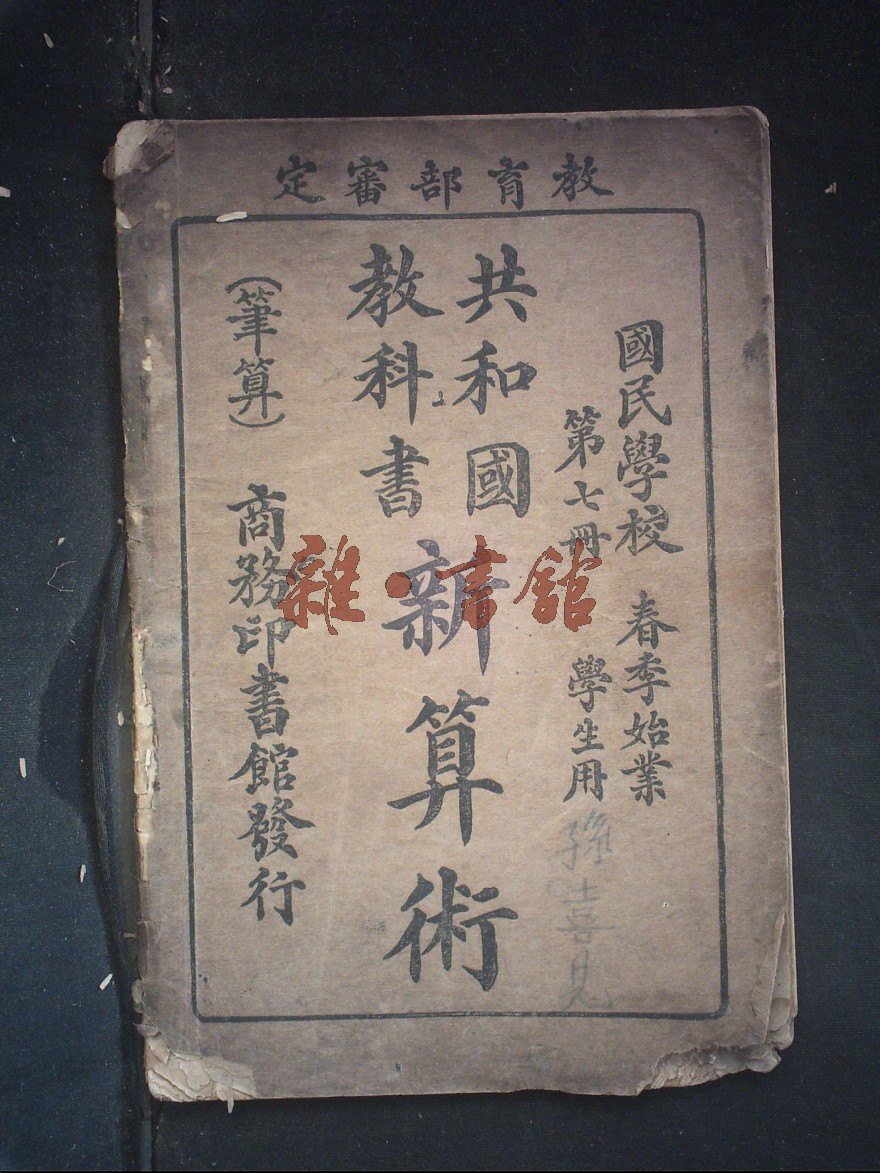 教育部審定
國民學校 春季始業
第七冊 學生用
共和國
教科書
新算術
（筆算） 商務印書館發行
孫喜見
雜·書館